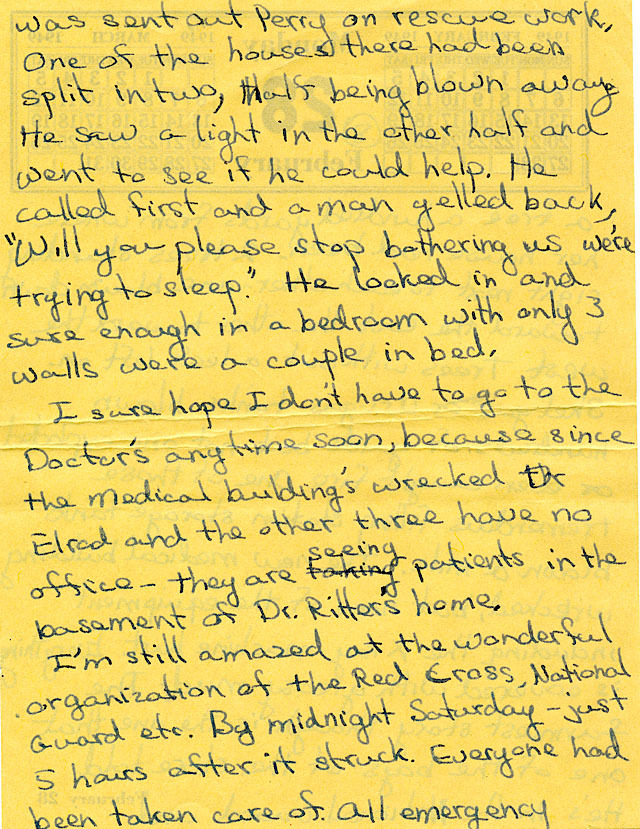 was sent out Perry on rescue work.
One of the houses there had been
split in two, half being blown away
He saw a light in the other half and
went to see if he could help. He
called first and a man yelled back,
"Will you please stop bothering us we're
trying to sleep." He looked in and
sure enough in a bedroom with only 3
walls were a couple in bed.
I sure hope I don't have to go to the
Doctor's anytime soon, because since
the medical building's wrecked Dr
Elrod and the other three have no
office - they are taking seeing patients in the
basement of Dr. Ritter's home.
I'm still amazed at the wonderful
organization of the Red Cross, National
Guard etc. By midnight Saturday - just
5 hours after it struck. Everyone had
been taken care of. All emergency